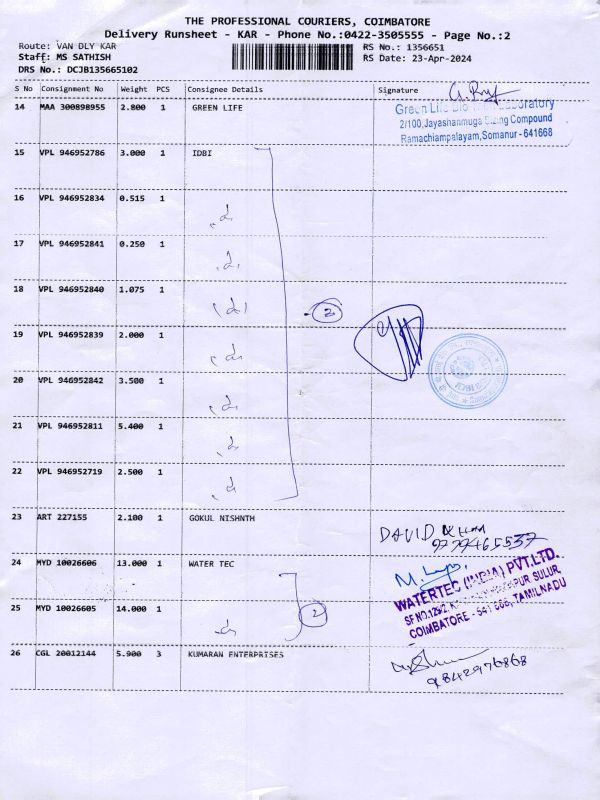 THE PROFESSIONAL COURIERS, COIMBATORE
Delivery Runsheet - KAR - Phone No.:0422-3505555 - Page No.:2
Route: VAN DLY KAR RS No.: 1356651
Staff: MS SATHISH RS Date: 23-Apr-2024
DRS No.: DCJB135665102
S No Consignment No Weight PCS Consignee Details Signature
14 MAA 300898955 2.800 1 GREEN LIFE
Green Life
2/100,Jayashanmuga Sizing Compound
Ramachiampalayam,Somanur - 641668
15 VPL 946952786 3.000 1 IDBI
16 VPL 946952834 0.515 1
17 VPL 946952841 0.250 1
18 VPL 946952840 1.075 1
2
19 VPL 946952839 2.000 1
20 VPL 946952842 3.500 1
21 VPL 946952811 5.400 1
22 VPL 946952719 2.500 1
23 ART 227155 2.100 1 GOKUL NISHNTH
DAVID
24 MYD 10026606 13.000 1 WATER TEC
WATERTEC (INDIA) PVT.LTD.
SULUR,
COIMBATORE - 641 668, TAMILNADU
25 MYD 10026605 14.000 1
2
26 CGL 20012144 5.900 3 KUMARAN ENTERPRISES
9842976868